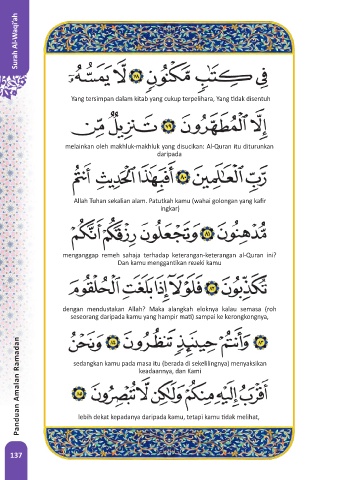 Surah Al-Waqi'ah
فِى كِتَٰبٍ مَّكْنُونٍ ٧٨ لَّا يَمَسُّهُۥٓ
Yang tersimpan dalam kitab yang cukup terpelihara, Yang tidak disentuh
إِلَّا ٱلْمُطَهَّرُونَ ٧٩ تَنزِيلٌ مِّن
melainkan oleh makhluk-makhluk yang disucikan: Al-Quran itu diturunkan
daripada
رَّبِّ ٱلْعَٰلَمِينَ ٨٠ أَفَبِهَٰذَا ٱلْحَدِيثِ أَنتُم
Allah Tuhan sekalian alam. Patutkah kamu (wahai golongan yang kafir
ingkar)
مُّدْهِنُونَ ٨١ وَتَجْعَلُونَ رِزْقَكُمْ أَنَّكُمْ
menganggap remeh sahaja terhadap keterangan-keterangan al-Quran ini?
Dan kamu menggantikan rezeki kamu
تُكَذِّبُونَ ٨٢ فَلَوْلَآ إِذَا بَلَغَتِ ٱلْحُلْقُومَ
dengan mendustakan Allah? Maka alangkah eloknya kalau semasa (roh
seseorang daripada kamu yang hampir mati) sampai ke kerongkongnya,
٨٣ وَأَنتُمْ حِينَئِذٍ تَنظُرُونَ ٨٤ وَنَحْنُ
sedangkan kamu pada masa itu (berada di sekelilingnya) menyaksikan
keadaannya, dan Kami
أَقْرَبُ إِلَيْهِ مِنكُمْ وَلَٰكِن لَّا تُبْصِرُونَ ٨٥
lebih dekat kepadanya daripada kamu, tetapi kamu tidak melihat,
Panduan Amalan Ramadan
137